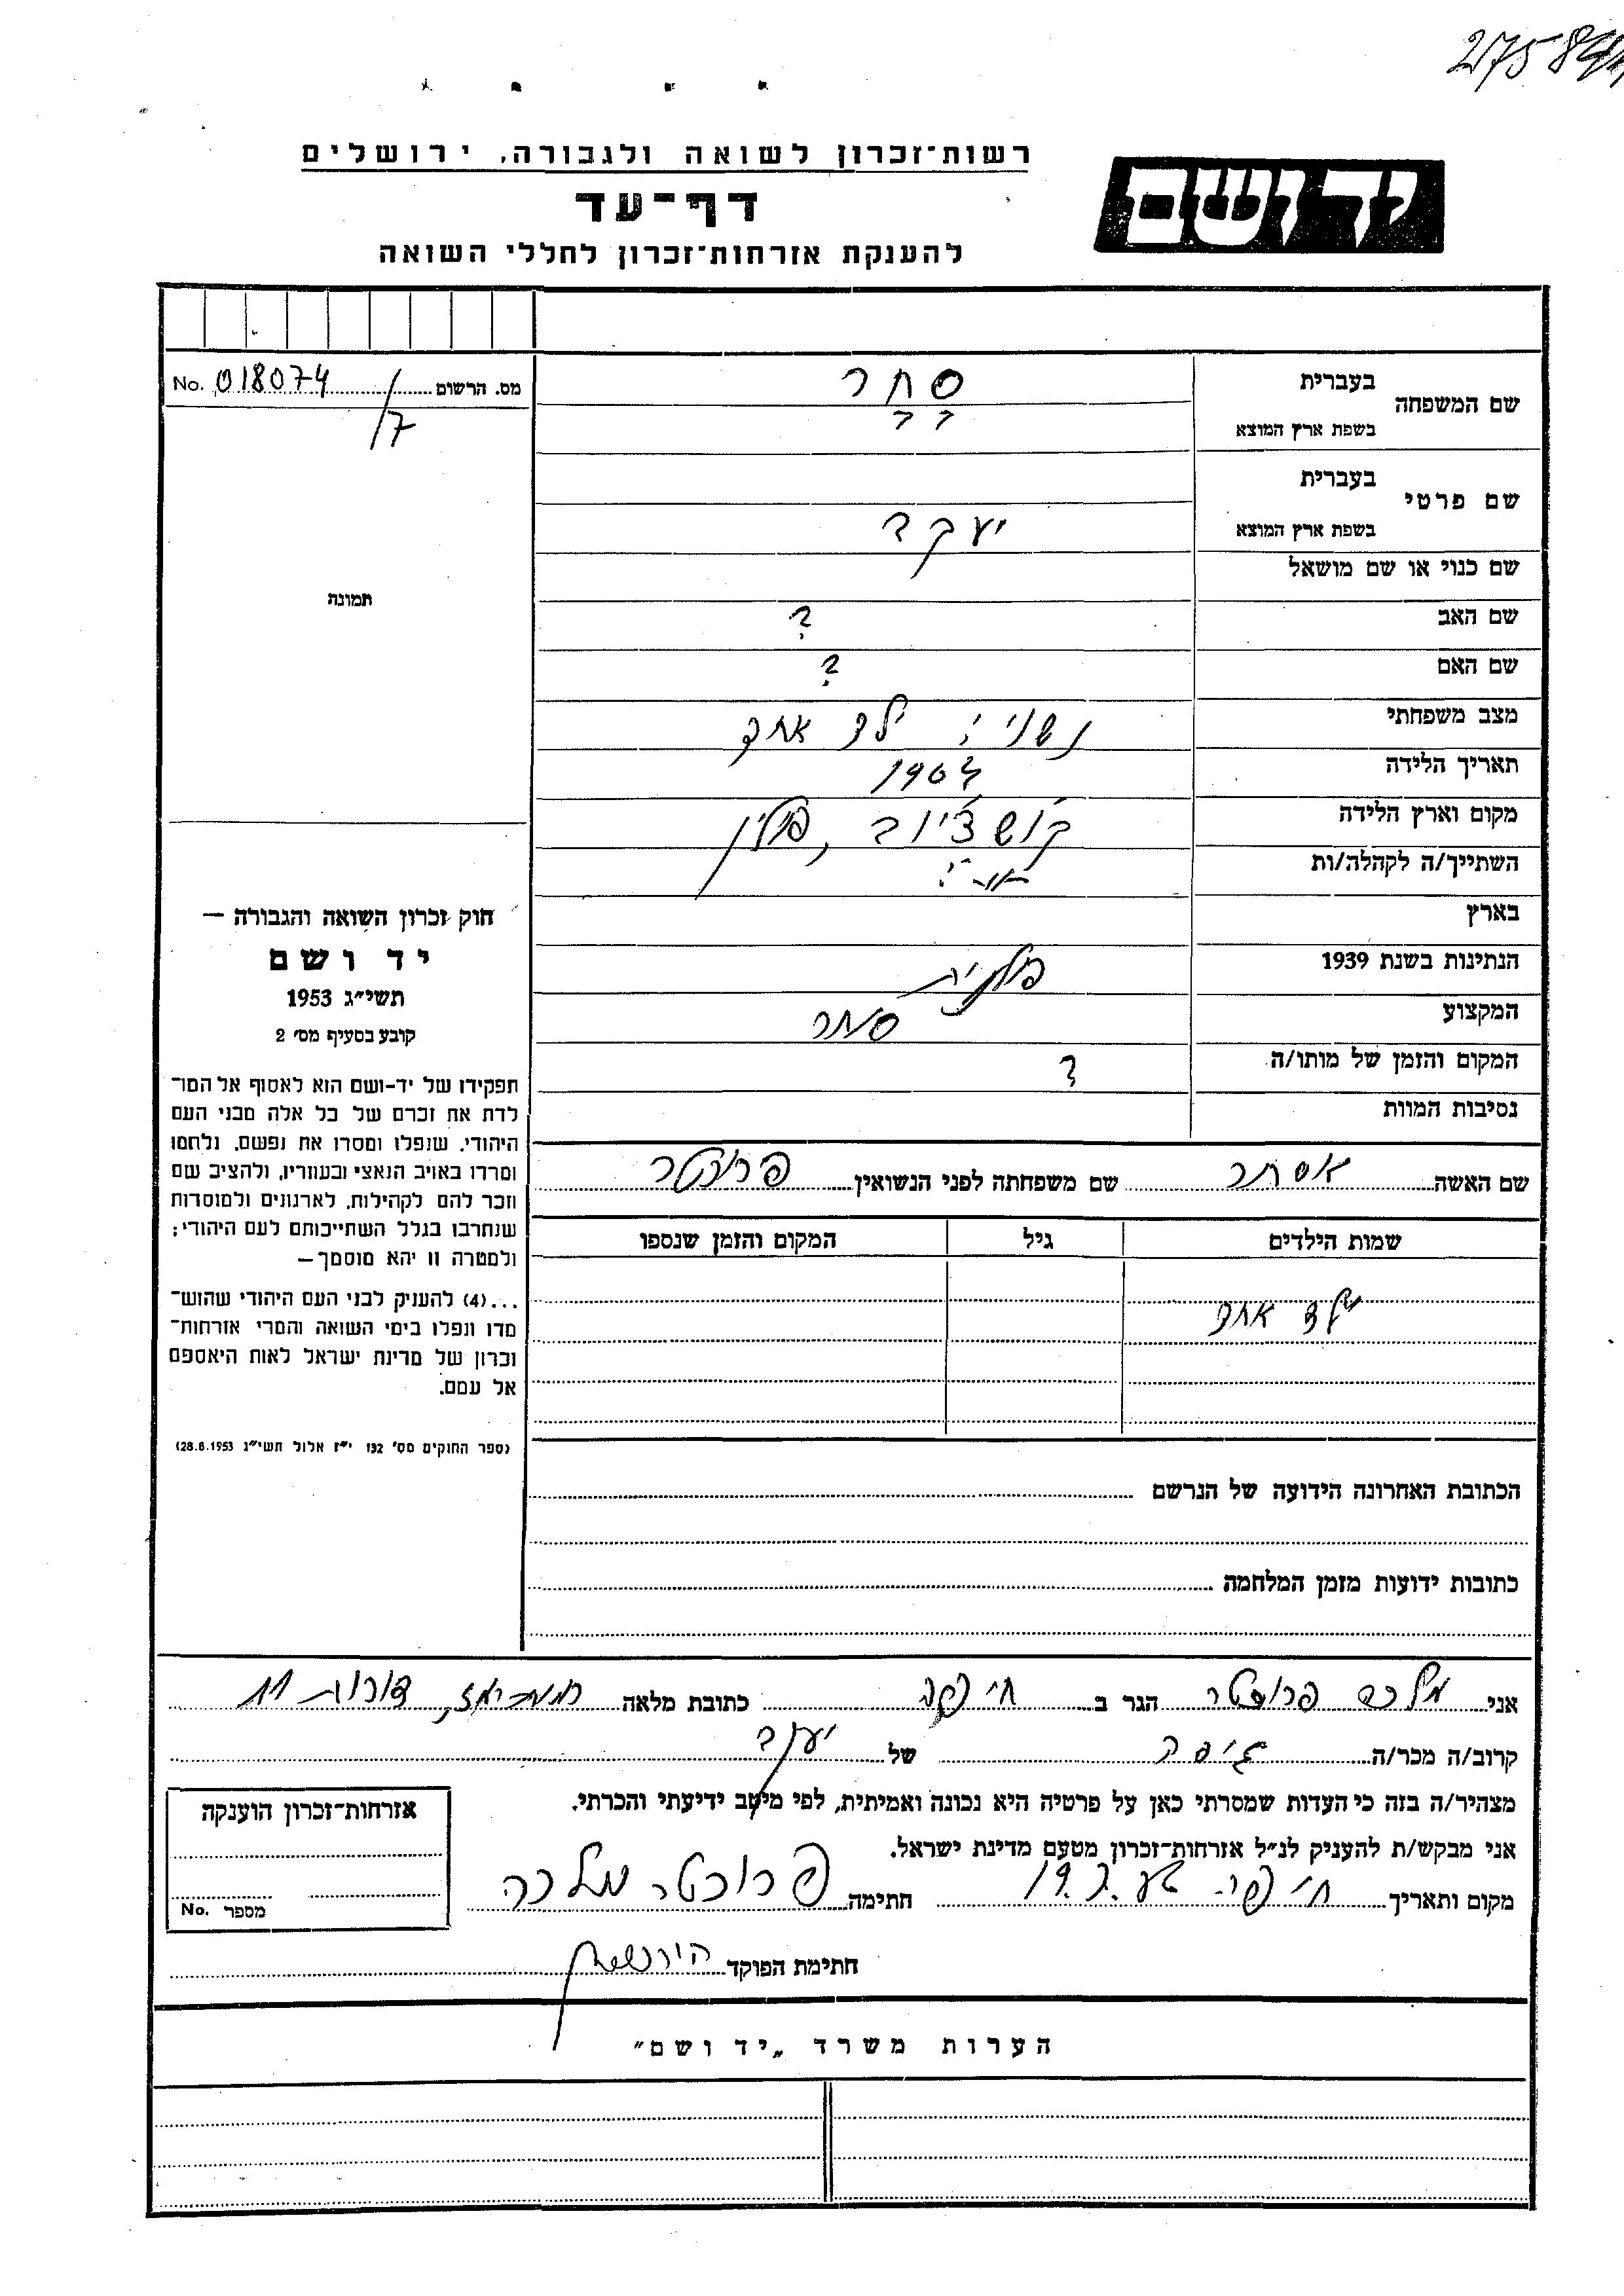 רשות־זכרון לשואה ולגבורה, ירושלים
יד ושם
דף־עד
להענקת אזרחות־זכרון לחללי השואה
מס. הרשום 018074 No.
/7
תמונה
שם המשפחה
בעברית סחר
בשפת ארץ המוצא
שם פרטי
בעברית
בשפת ארץ המוצא יעקב
שם כנוי או שם מושאל
שם האב ?
שם האם ?
מצב משפחתי נשוי; ילד אחד
תאריך הלידה
מקום וארץ הלידה פולין
השתייך/ה לקהלה/ות
בארץ
הנתינות בשנת 1939 פולנית
המקצוע סוחר
המקום והזמן של מותו/ה ?
נסיבות המוות
שם האשה אסתר שם משפחתה לפני הנשואין
שמות הילדים גיל המקום והזמן שנספו
ילד אחד
הכתובת האחרונה הידועה של הנרשם
כתובות ידועות מזמן המלחמה
חוק זכרון השואה והגבורה —
יד ושם
תשי״ג 1953
קובע בסעיף מס׳ 2
תפקידו של יד-ושם הוא לאסוף אל המו־
לדת את זכרם של כל אלה מבני העם
היהודי, שנפלו ומסרו את נפשם, נלחמו
ומרדו באויב הנאצי ובעוזריו, ולהציב שם
וזכר להם לקהילות, לארגונים ולמוסדות
שנחרבו בגלל השתייכותם לעם היהודי;
ולמטרה זו יהא מוסמך—
...(4) להעניק לבני העם היהודי שהוש־
מדו ונפלו בימי השואה והמרי אזרחות־
זכרון של מדינת ישראל לאות היאספם
אל עמם.
(ספר החוקים מס׳ 132 י״ז אלול תשי״ג 28.8.1953)
אני מלכה הגר ב חיפה כתובת מלאה דורות 11
קרוב/ה מכר/ה גיסה של יעקב
מצהיר/ה בזה כי העדות שמסרתי כאן על פרטיה היא נכונה ואמיתית, לפי מיטב ידיעתי והכרתי.
אני מבקש/ת להעניק לנ״ל אזרחות־זכרון מטעם מדינת ישראל.
מקום ותאריך חיפה חתימה מלכה
חתימת הפוקד
אזרחות־זכרון הוענקה
מספר No.
הערות משרד „יד ושם״